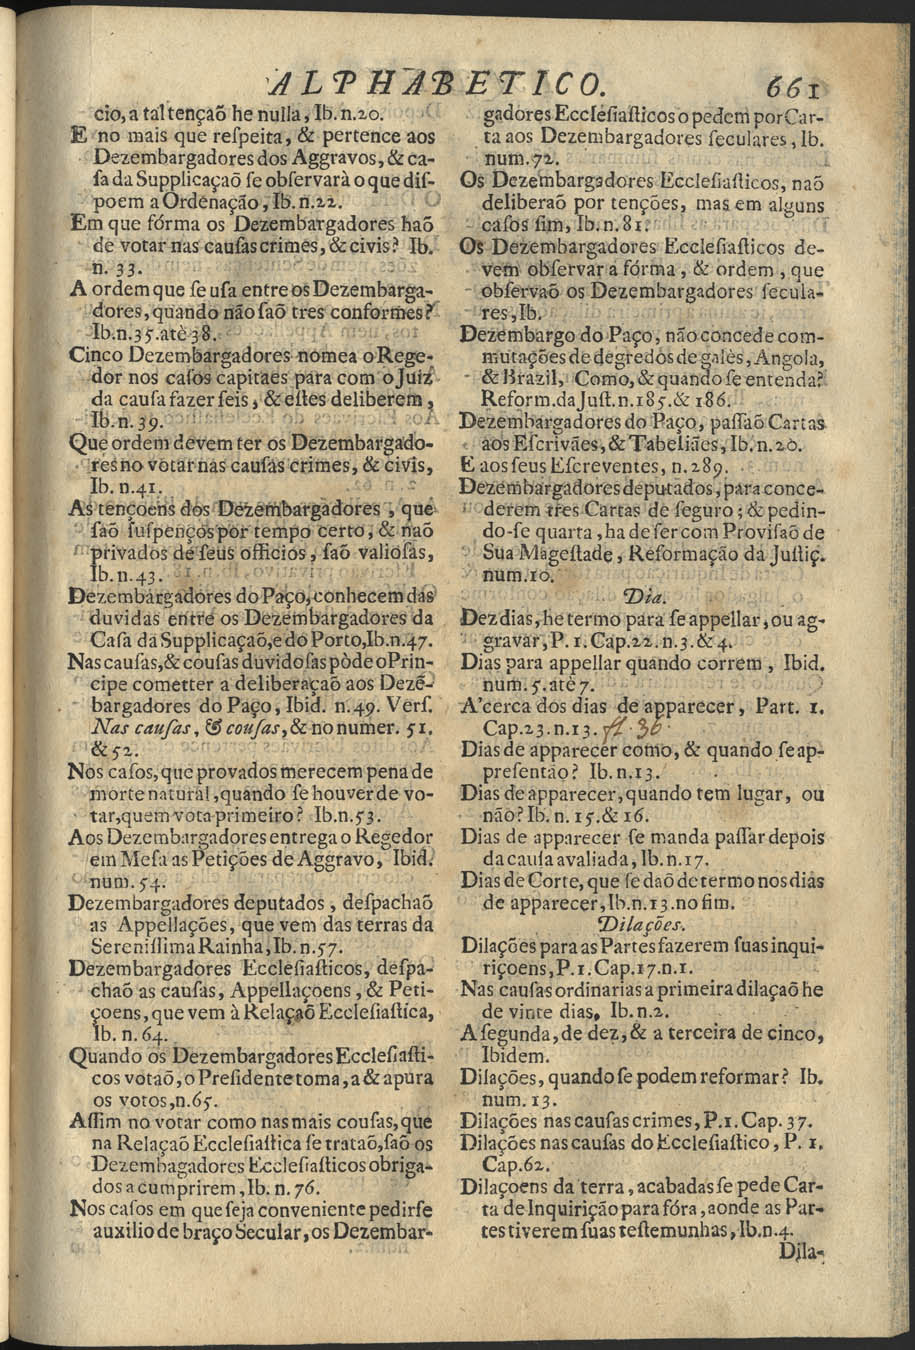 ALPHABETICO. 661
cio, a tal tençaõ he nulla, Ib. n.20.
E no mais que reſpeita, & pertence aos
Dezembargadores dos Aggravos, & ca-
ſa da Supplicaçaõ ſe obſervarà o que diſ-
poem a Ordenação, Ib. n.22.
Em que fórma os Dezembargadores haõ
de votar nas cauſas crimes, & civis? Ib.
n. 33.
A ordem que ſe uſa entre os Dezembarga-
dores, quando não ſaõ tres conformes?
Ib.n.35.atè 38.
Cinco Dezembargadores nomea o Rege-
dor nos caſos capitaes para com o Juiz
da cauſa fazer ſeis, & eſtes deliberem,
Ib. n. 39.
Que ordem devem ter os Dezembargado-
res no votar nas cauſas crimes, & civis,
Ib. n.41.
As tençoens dos Dezembargadores, que
ſaõ ſuſpenços por tempo certo, & naõ
privados de ſeus officios, ſaõ valioſas,
Ib. n. 43.
Dezembargadores do Paço, conhecem das
duvidas entre os Dezembargadores da
Caſa da Supplicaçaõ, e do Porto, Ib.n.47.
Nas cauſas, & couſas duvidoſas pòde o Prin-
cipe cometter a deliberaçaõ aos Dezẽ-
bargadores do Paço, Ibid. n.49. Verſ.
Nas cauſas, & couſas, & no numer. 51.
& 52.
Nos caſos, que provados merecem pena de
morte natural, quando ſe houver de vo-
tar, quem vota primeiro? Ib.n.53.
Aos Dezembargadores entrega o Regedor
em Meſa as Petições de Aggravo, Ibid.
num. 54.
Dezembargadores deputados, deſpachaõ
as Appellações, que vem das terras da
Sereniſſima Rainha, Ib. n.57.
Dezembargadores Eccleſiaſticos, deſpa-
chaõ as cauſas, Appellaçoens, & Peti-
çoens, que vem à Relaçaõ Eccleſiaſtica,
Ib. n. 64.
Quando os Dezembargadores Eccleſiaſti-
cos votaõ, o Preſidente toma, a & apura
os votos, n.65.
Aſſim no votar como nas mais couſas, que
na Relaçaõ Eccleſiaſtica ſe trataõ, ſaõ os
Dezembagadores Eccleſiaſticos obriga-
dos a cumprirem, Ib. n. 76.
Nos caſos em que ſeja conveniente pedirſe
auxilio de braço Secular, os Dezembar-
gadores Eccleſiaſticos o pedem por Car-
ta aos Dezembargadores ſeculares, Ib.
num. 72.
Os Dezembargadores Eccleſiaſticos, naõ
deliberaõ por tenções, mas em alguns
caſos ſim, Ib. n. 81.
Os Dezembargadores Eccleſiaſticos de-
vem obſervar a fórma, & ordem, que
obſervaõ os Dezembargadores ſecula-
res, Ib.
Dezembargo do Paço, não concede com-
mutações de degredos de galès, Angola,
& Brazil, Como, & quando ſe entenda?
Reform. da Juſt. n.185.& 186.
Dezembargadores do Paço, paſſaõ Cartas
aos Eſcrivães, & Tabeliães, Ib. n.20.
E aos ſeus Eſcreventes, n.289.
Dezembargadores deputados, para conce-
derem tres Cartas de ſeguro; & pedin-
do-ſe quarta, ha de ſer com Proviſaõ de
Sua Mageſtade, Reformação da Juſtiç.
num.10.
Dia.
Dez dias, he termo para ſe appellar, ou ag-
gravar, P. 1. Cap.22. n.3.& 4.
Dias para appellar quando correm, Ibid.
num. 5. atè 7.
A'cerca dos dias de apparecer, Part. 1.
Cap.23.n.13. fl. 36.
Dias de apparecer como, & quando ſe ap-
preſentão? Ib.n.13.
Dias de apparecer, quando tem lugar, ou
não? Ib. n. 15.& 16.
Dias de apparecer ſe manda paſſar depois
da cauſa avaliada, Ib. n.17.
Dias de Corte, que ſe daõ de termo nos dias
de apparecer, Ib.n.13. no fim.
Dilações.
Dilações para as Partes fazerem ſuas inqui-
riçoens, P.1. Cap.17.n.1.
Nas cauſas ordinarias a primeira dilaçaõ he
de vinte dias, Ib. n.2.
A ſegunda, de dez, & a terceira de cinco,
Ibidem.
Dilações, quando ſe podem reformar? Ib.
num. 13.
Dilações nas cauſas crimes, P.1. Cap. 37.
Dilações nas cauſas do Eccleſiaſtico, P. 1.
Cap.62.
Dilaçoens da terra, acabadas ſe pede Car-
ta de Inquirição para fóra, aonde as Par-
tes tiverem ſuas teſtemunhas, Ib.n.4.
Dila-